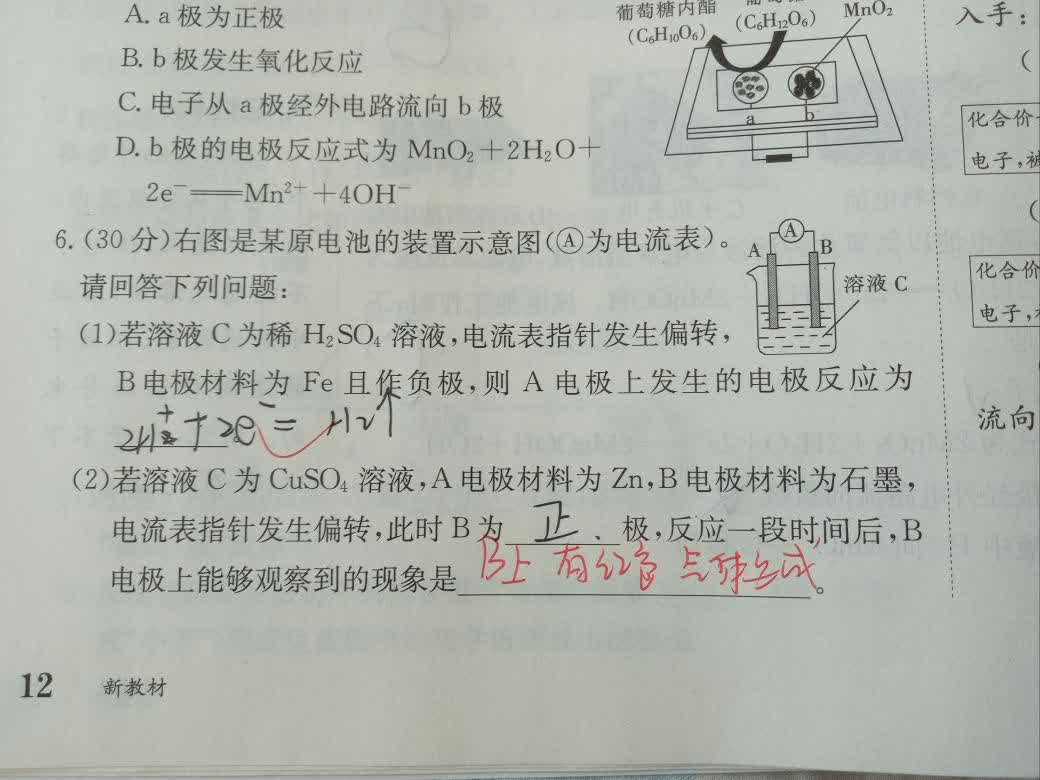 A. a极为正极
B. b极发生氧化反应
C. 电子从a极经外电路流向b极
D. b极的电极反应式为MnO₂+2H₂O+
2e⁻══Mn²⁺+4OH⁻
葡萄糖内酯
(C₆H₁₀O₆)
(C₆H₁₂O₆)
MnO₂
a
b
6. (30分)右图是某原电池的装置示意图(Ⓐ为电流表)。
请回答下列问题:
A
A
B
溶液C
(1)若溶液C为稀H₂SO₄溶液,电流表指针发生偏转,
B电极材料为Fe且作负极,则A电极上发生的电极反应为
2H⁺+2e⁻=H₂↑
(2)若溶液C为CuSO₄溶液,A电极材料为Zn,B电极材料为石墨,
电流表指针发生偏转,此时B为 正 极,反应一段时间后,B
电极上能够观察到的现象是 B上有红色 。
12 新教材
入手:
(
化合价
电子,被
(
化合价
电子,
流向